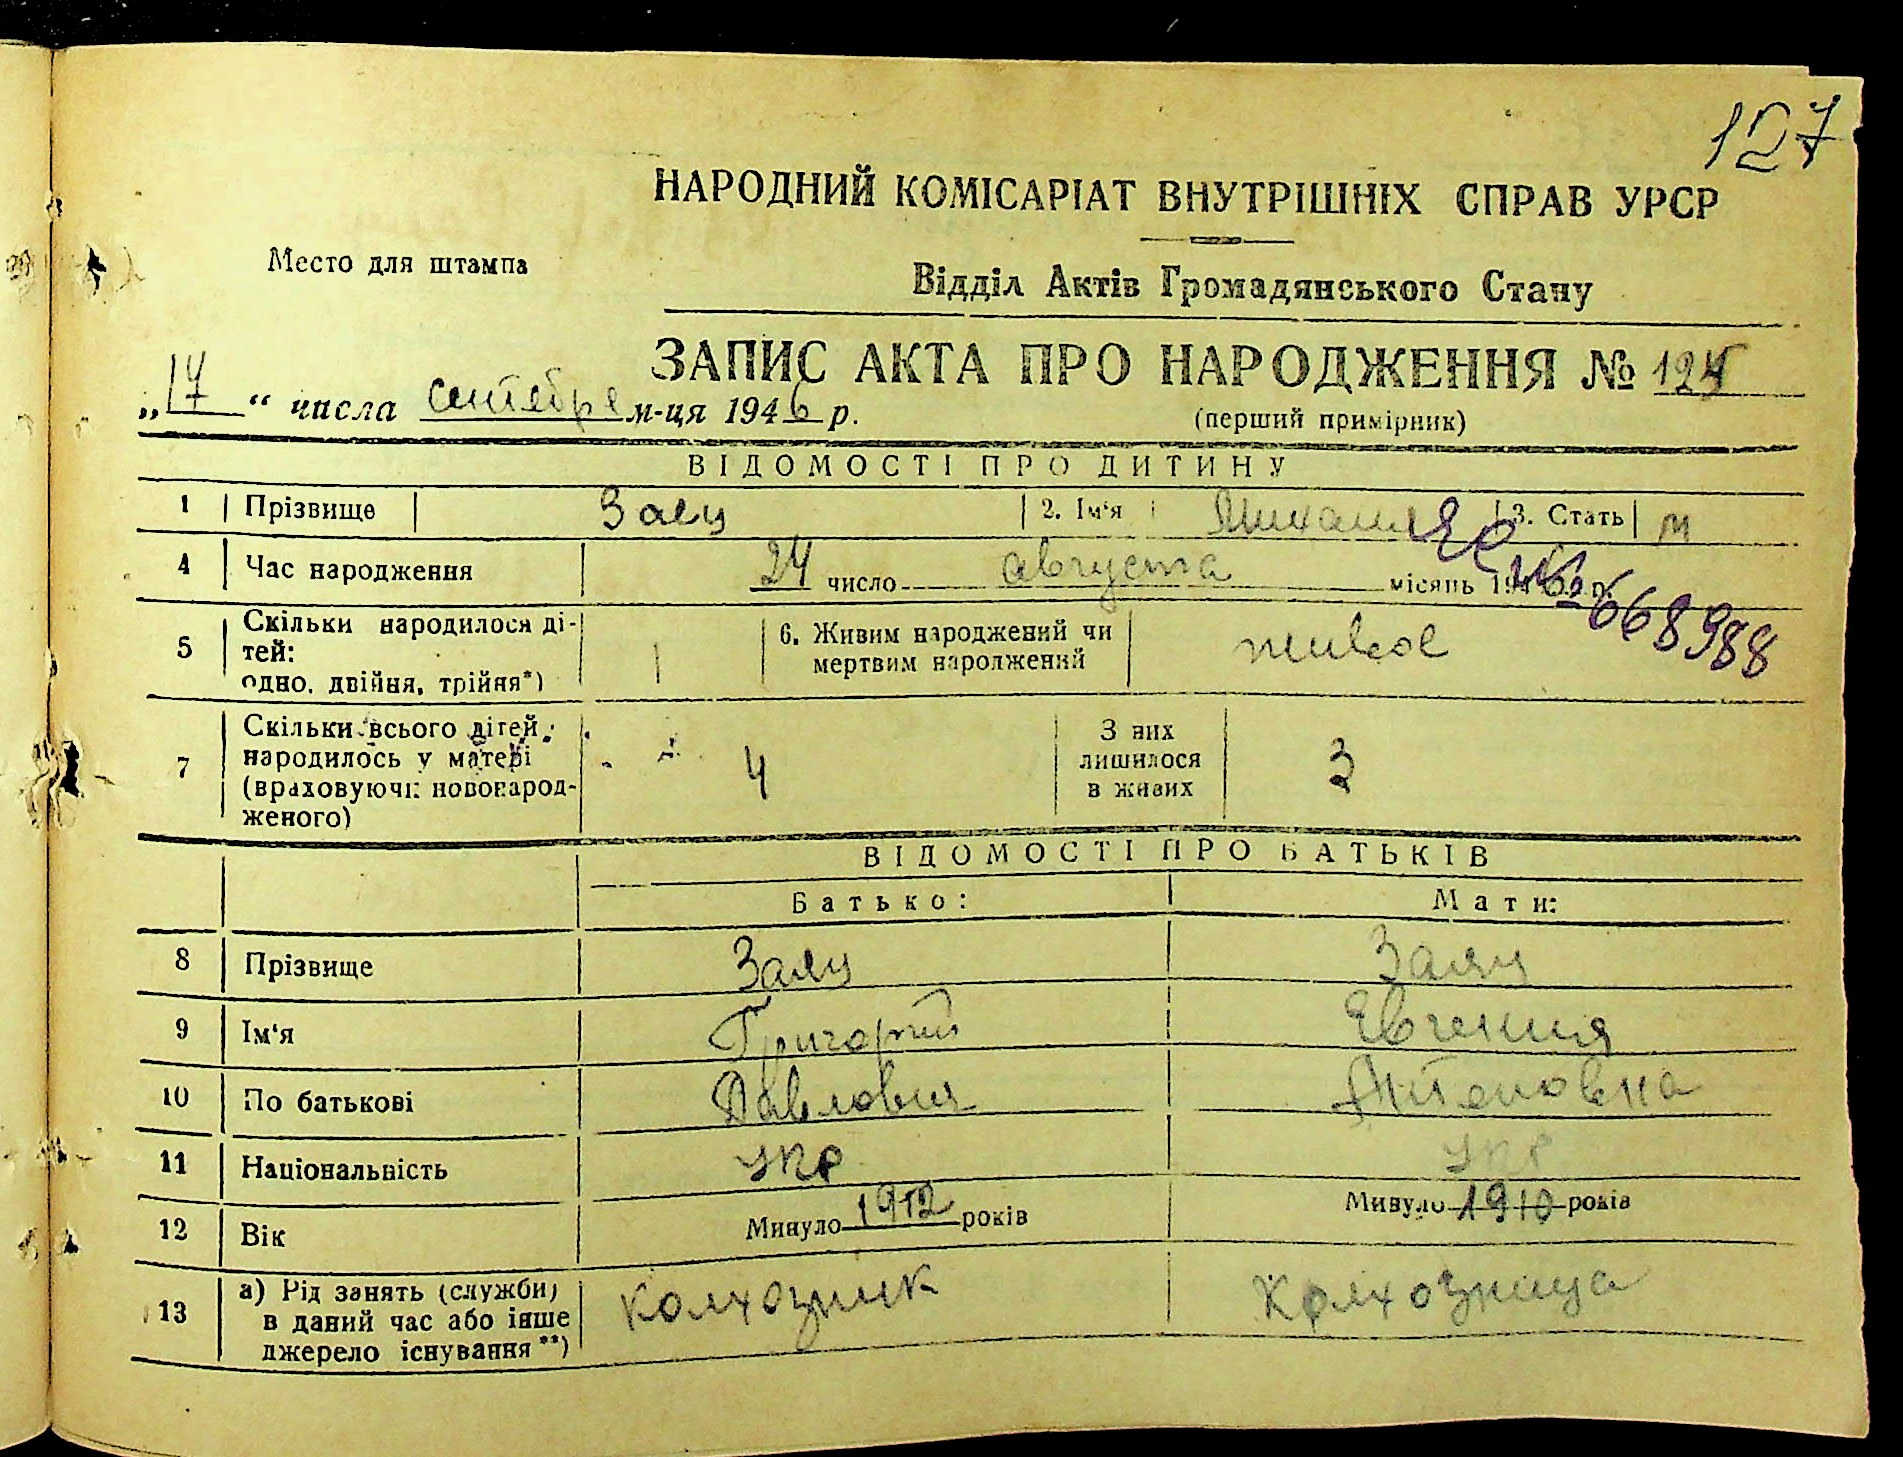 127
НАРОДНИЙ КОМІСАРІАТ ВНУТРІШНІХ СПРАВ УРСР
Место для штампа
Відділ Актів Громадянського Стану
ЗАПИС АКТА ПРО НАРОДЖЕННЯ № 124
„17“ числа сентября м-ця 1946 р. (перший примірник)
ВІДОМОСТІ ПРО ДИТИНУ
1 Прізвище Заец 2. Ім'я Михаил 3. Стать м
4 Час народження 24 число августа місяць 1946 р.
668988
5 Скільки народилося ді-
тей:
одно, двійня, трійня*) 1 6. Живим народжений чи
мертвим народжений живое
7 Скільки всього дітей
народилось у матері
(враховуючи новонарод-
женого) 4 З них
лишилося
в живих 3
ВІДОМОСТІ ПРО БАТЬКІВ
Батько: Мати:
8 Прізвище Заяц Заяц
9 Ім'я Григорий Евгения
10 По батькові Павлович Антоновна
11 Національність укр укр
12 Вік Минуло 1912 років Минуло 1910 років
13 а) Рід занять (служби)
в даний час або інше
джерело існування**) колхозник Колхозница